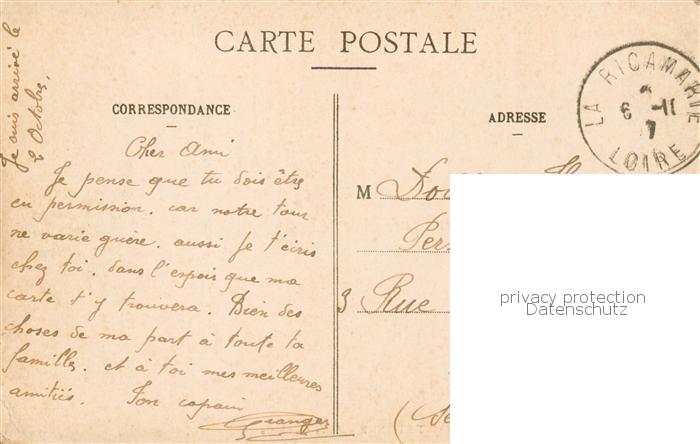 CARTE POSTALE
Je suis arrivé le
2 Octobre,
CORRESPONDANCE
Cher Ami
Je pense que tu dois être
en permission. car notre tour
ne varie guère. aussi je t'écris
chez toi. dans l'espoir que ma
carte t'y trouvera. Bien des
choses de ma part à toute ta
famille. et à toi mes meilleures
amitiés. Ton copain
Granger
ADRESSE
M
3 Rue
LA RICAMARIE
6 -11
LOIRE
privacy protection
Datenschutz